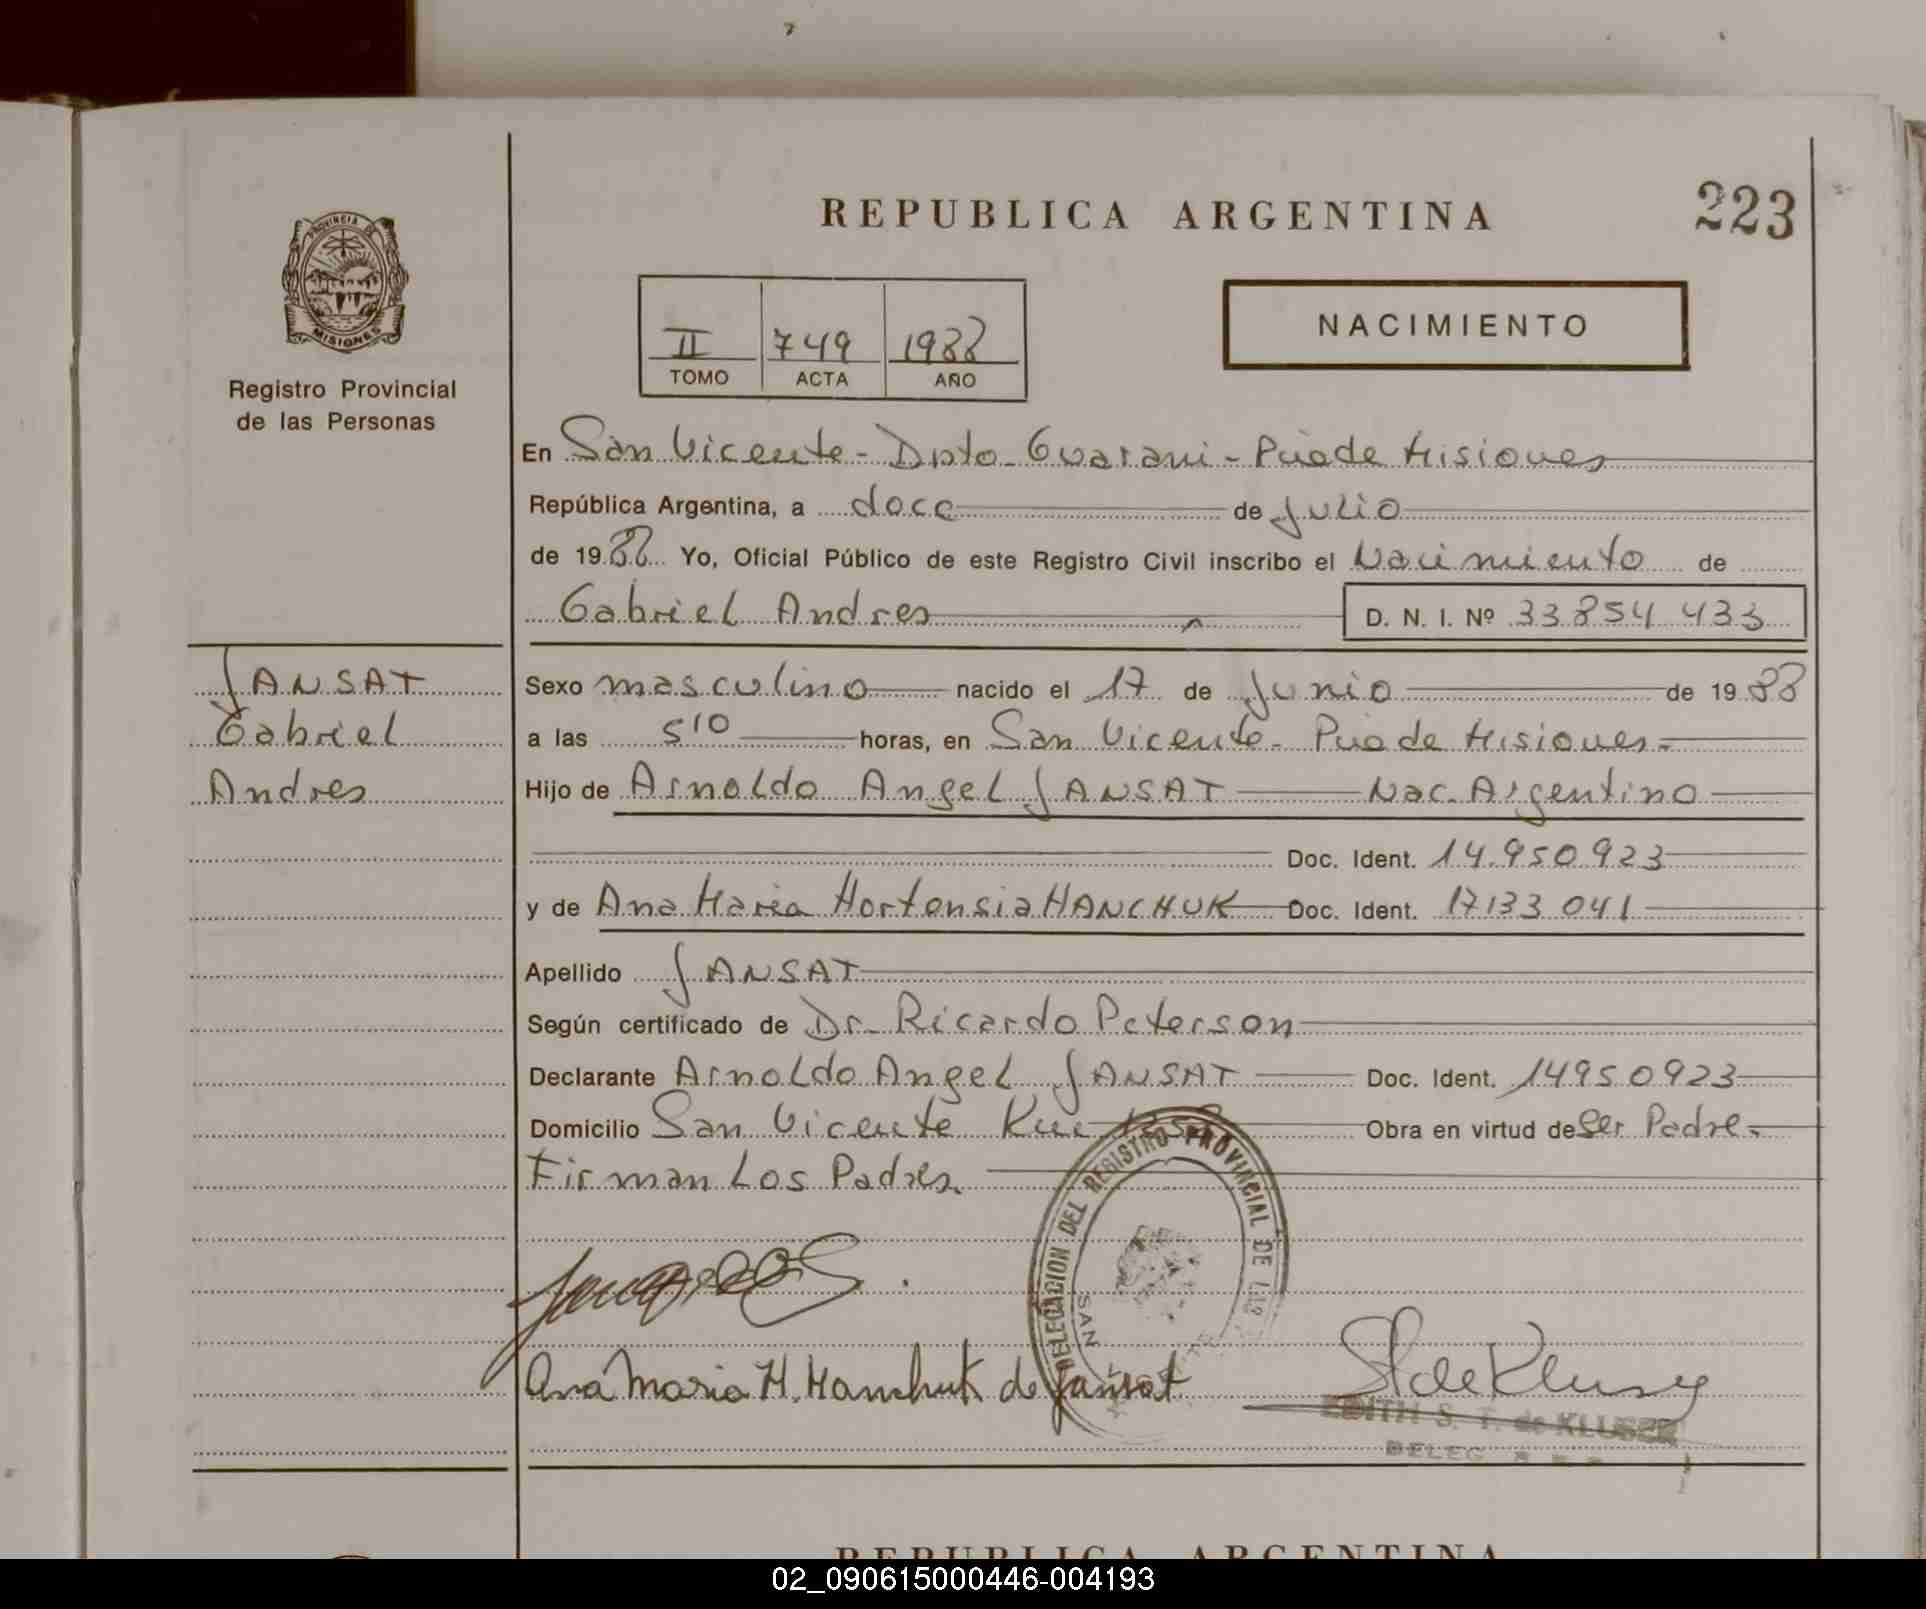 REPUBLICA ARGENTINA
223
PROVINCIA DE
MISIONES
Registro Provincial
de las Personas
NACIMIENTO
II 749 1988
TOMO ACTA AÑO
En San Vicente - Dpto. Guarani - Pcia de Misiones
República Argentina, a doce de Julio
de 1988 Yo, Oficial Público de este Registro Civil inscribo el Nacimiento de
Gabriel Andres D. N. I. Nº 33 854 433
JANSAT
Gabriel
Andres
Sexo masculino nacido el 17 de Junio de 1988
a las 5'10 horas, en San Vicente - Pcia de Misiones.
Hijo de Arnoldo Angel JANSAT Nac. Argentino
Doc. Ident. 14.950.923
y de Ana Maria Hortensia HANCHUK Doc. Ident. 17133 041
Apellido JANSAT
Según certificado de Dr. Ricardo Peterson
Declarante Arnoldo Angel JANSAT Doc. Ident. 14950923
Domicilio San Vicente Obra en virtud de Ser Padre.
Firman Los Padres.
DELEGACION DEL REGISTRO PROVINCIAL DE LAS
SAN
Ana Maria H. Hanchuk de Jansat
EDITH S. T. de KLUSER
DELEG
REPUBLICA ARGENTINA
02_090615000446-004193